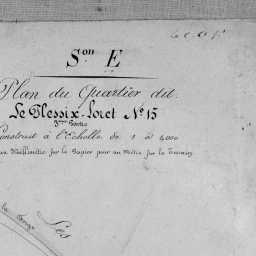 Son E
Plan du Quartier dit
Le Plessix-Loret No 15
3eme Partie
Construit à l'Echelle de 1 à 4000
Millimètre sur le Papier pour un Mètre sur le Terrain
Les